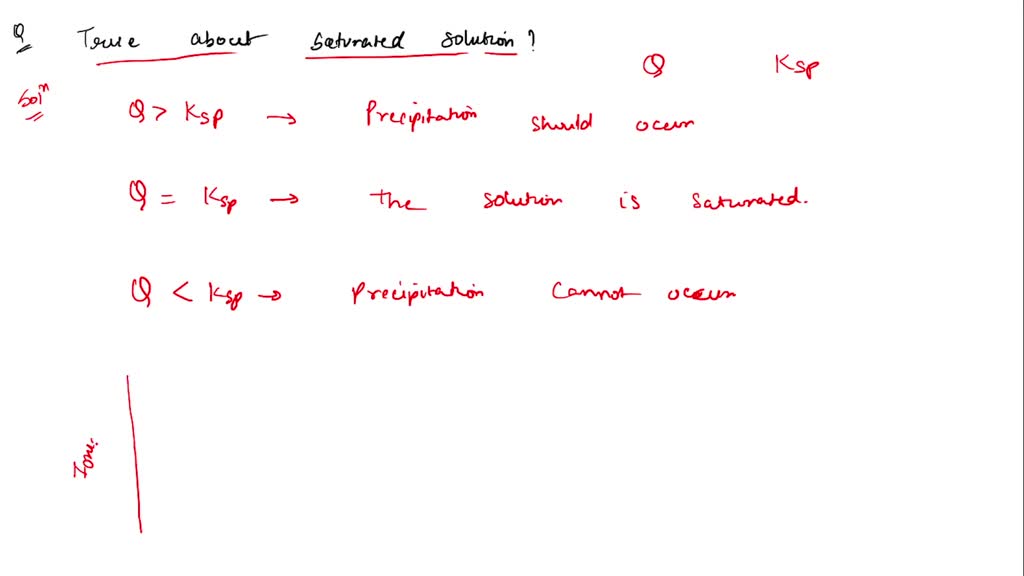 Q True about saturated solution?
Q Ksp
Solⁿ Q > Ksp → Precipitation should occur
Q = Ksp → The solution is saturated.
Q < Ksp → Precipitation cannot occur